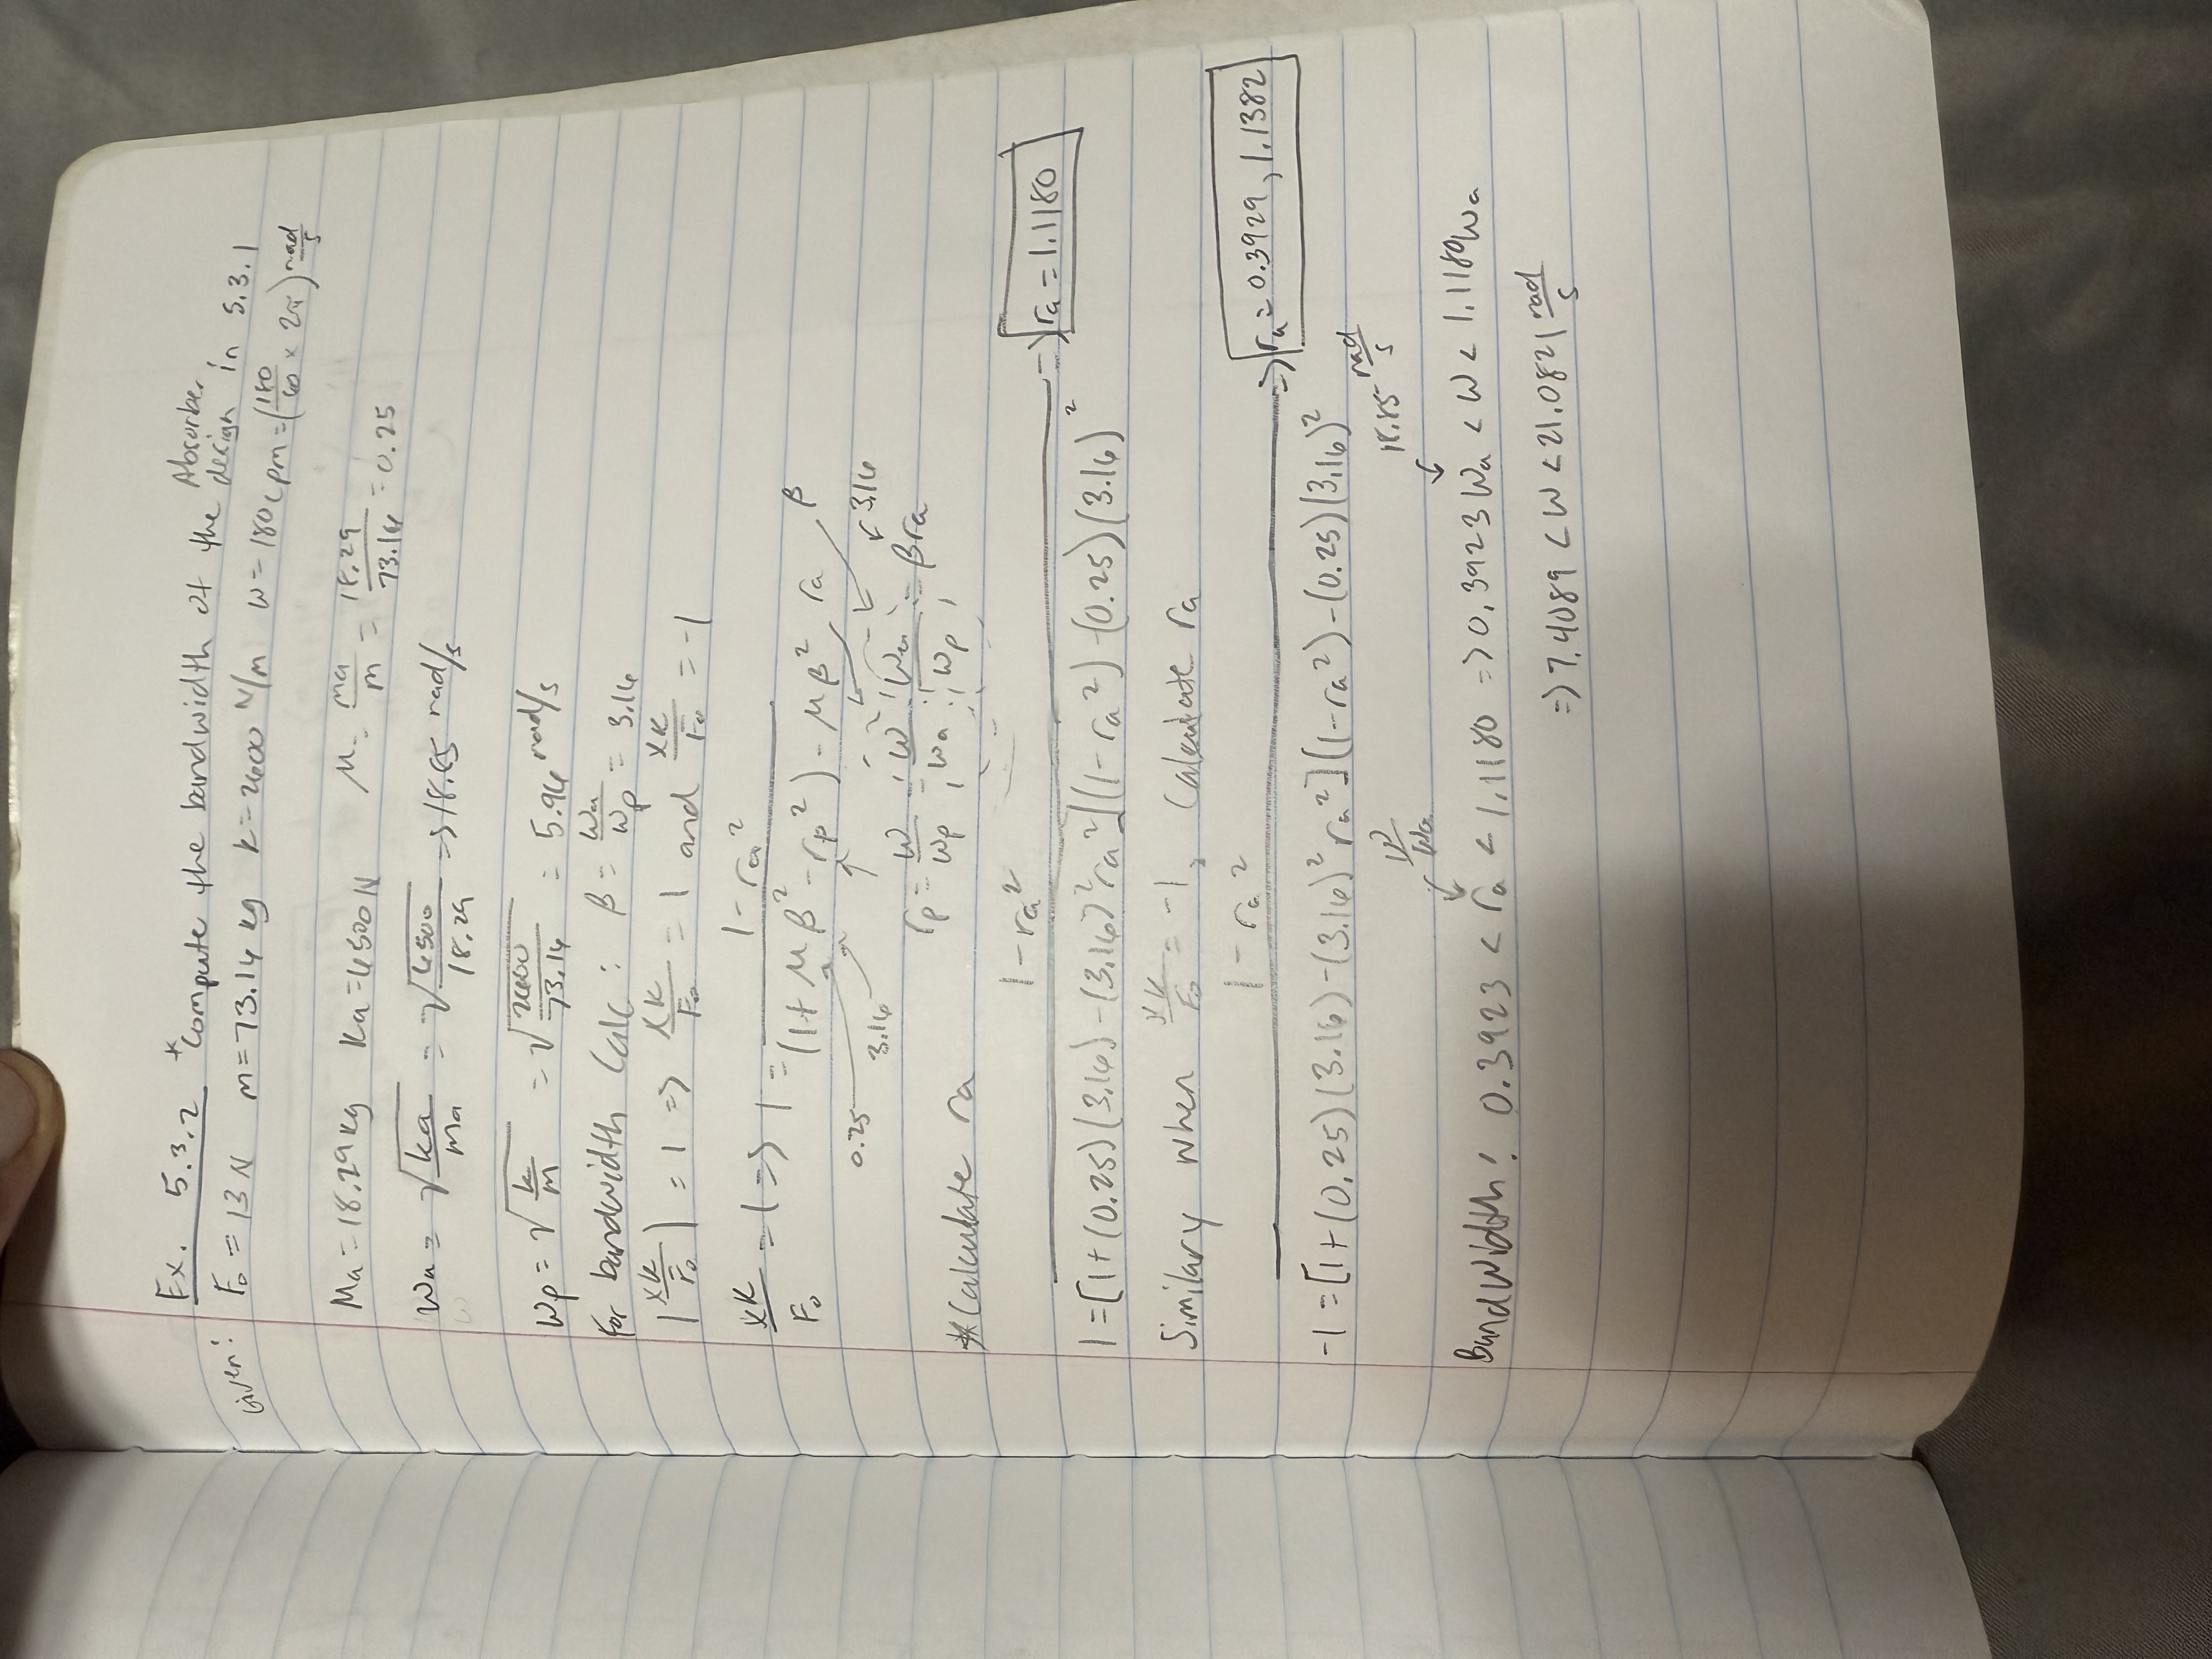 Ex. 5.3.2 *Compute the bandwidth of the Absorber design in 5.3.1
Given: F₀ = 13 N m=73.16 kg k=2600 N/m w=180cpm=(180/60 × 2π) rad/s
Ma=18.29kg Ka=6500N μ= ma/m = 18.29/73.16 = 0.25
Wa= √(ka/ma) = √(6500/18.29) => 18.85 rad/s
Wp= √(k/m) = √(2600/73.16) = 5.96 rad/s
For bandwidth Calc: β= Wa/Wp = 3.16
|XK/F₀| = 1 => XK/F₀ = 1 and XK/F₀ = -1
XK/F₀ = 1 => 1 = (1-ra²)/((1+ μβ² - rp²) - μβ² ra β
0.25 3.16 3.16
rp= w/wp w/wa wa/wp βra
*Calculate ra
1-ra²
1=[1+(0.25)(3.16)-(3.16)²ra²](1-ra²)-(0.25)(3.16)² => ra=1.1180
Similary when XK/F₀ = -1, Calculate ra
1-ra²
-1=[1+(0.25)(3.16)-(3.16)²ra²](1-ra²)-(0.25)(3.16)² => ra=0.3929, 1.1382
w/wa 18.85 rad/s
Bandwidth: 0.3923 < ra < 1.1180 => 0.3923Wa < W < 1.1180Wa
=> 7.4089 < W < 21.0821 rad/s